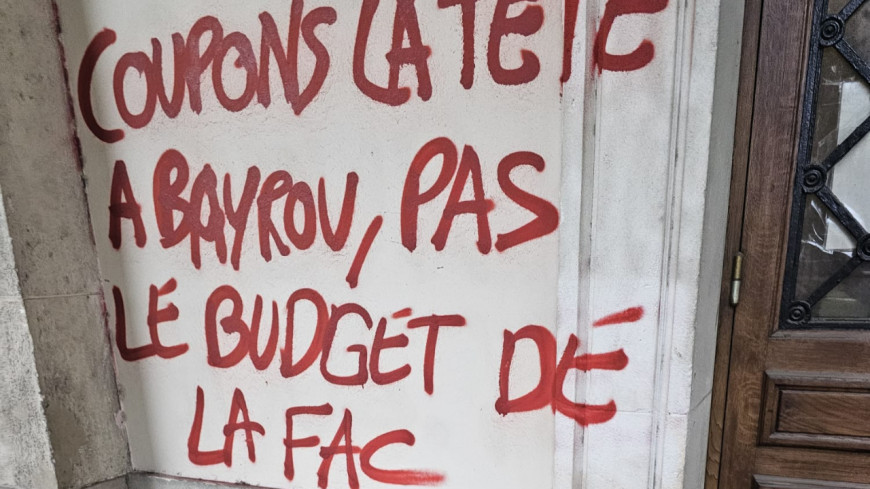 COUPONS LA TÊTE
A BAYROU, PAS
LÉ BUDGÉT DÉ
LA FAC